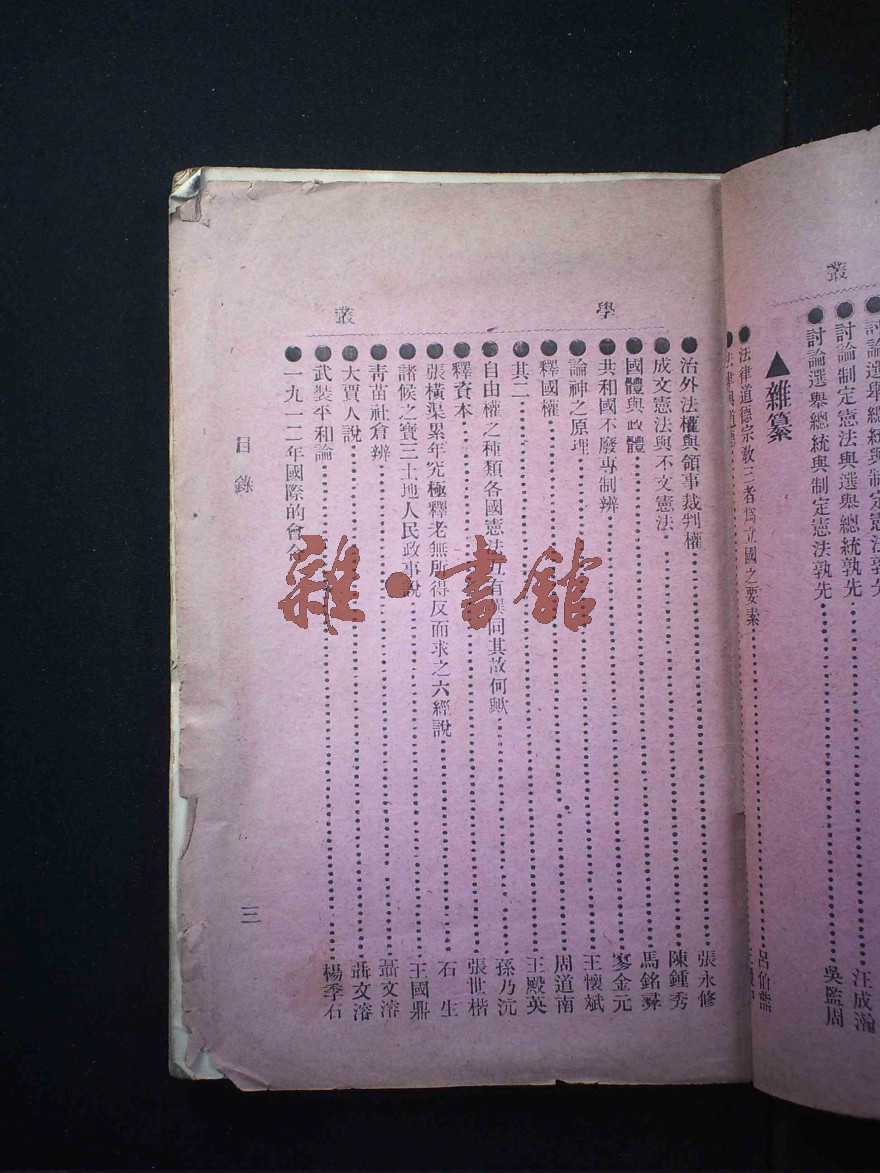 叢
討論選舉總統與制定憲法孰先
●討論制定憲法與選舉總統孰先……汪成瀚
●討論選舉總統與制定憲法孰先……吳監周
▲雜纂
●法律道德宗敎三者爲立國之要素……呂伯
●法律與道德
學叢
●治外法權與領事裁判權……張永修
●成文憲法與不文憲法……陳鍾秀
●國體與政體……馬銘彝
●共和國不廢專制辨……寥金元
●論神之原理……王懷斌
●釋國權……周道南
●其二……王殿英
●自由權之種類各國憲法互有異同其故何歟……孫乃沆
●釋資本……張世楷
●張橫渠累年究極釋老無所得反而求之六經說……石生
●諸候之寶三土地人民政事說……王國鼎
●靑苗社倉辨……聶文溶
●大賈人說……聶文溶
●武裝平和論……楊季石
●一九一二年國際的會合
目錄
三
雜·書館